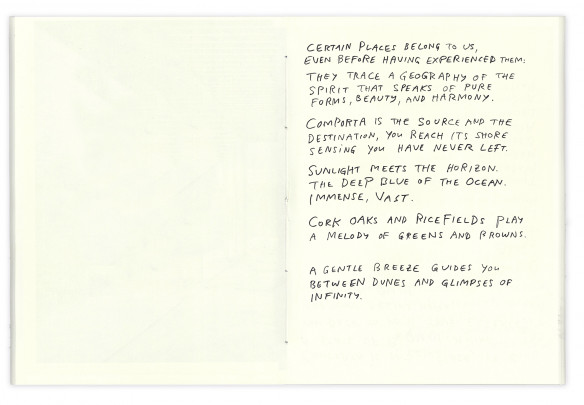 CERTAIN PLACES BELONG TO US,
EVEN BEFORE HAVING EXPERIENCED THEM:
THEY TRACE A GEOGRAPHY OF THE
SPIRIT THAT SPEAKS OF PURE
FORMS, BEAUTY, AND HARMONY.
COMPORTA IS THE SOURCE AND THE
DESTINATION, YOU REACH ITS SHORE
SENSING YOU HAVE NEVER LEFT.
SUNLIGHT MEETS THE HORIZON.
THE DEEP BLUE OF THE OCEAN.
IMMENSE, VAST.
CORK OAKS AND RICE FIELDS PLAY
A MELODY OF GREENS AND BROWNS.
A GENTLE BREEZE GUIDES YOU
BETWEEN DUNES AND GLIMPSES OF
INFINITY.